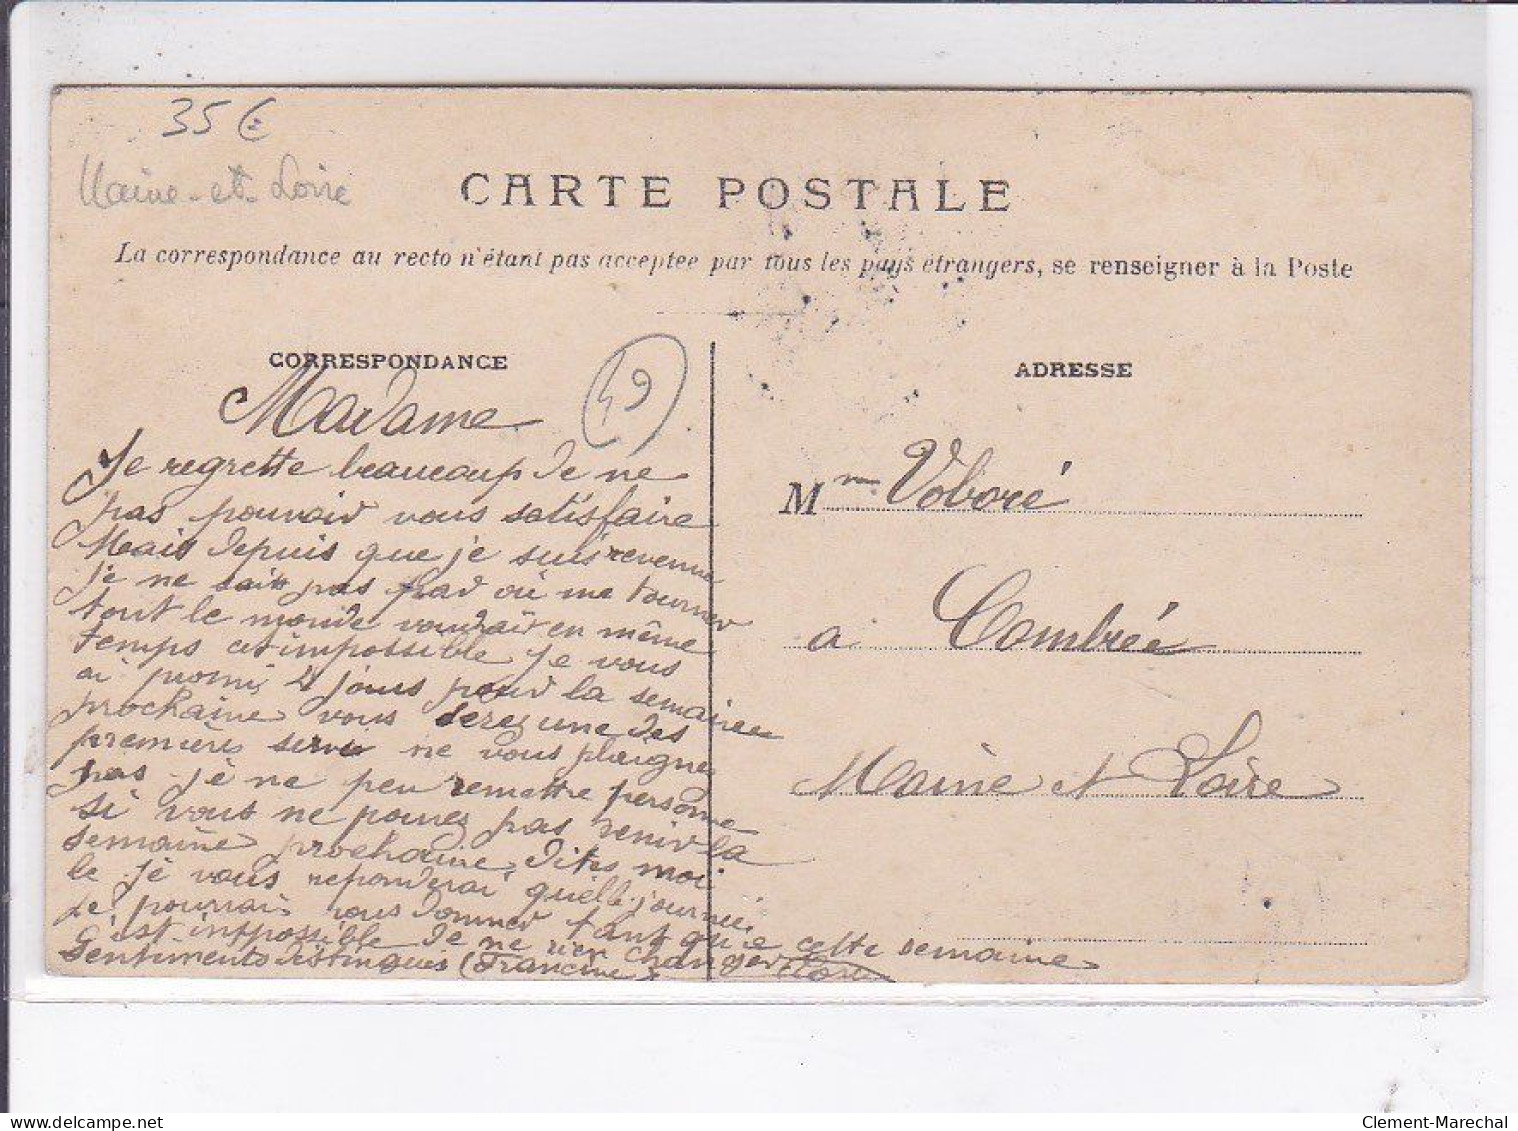 35 €
Maine-et-Loire
CARTE POSTALE
La correspondance au recto n'étant pas acceptee par tous les pays étrangers, se renseigner à la Poste
CORRESPONDANCE
49
Madame
Je regrette beaucoup de ne
pas pouvoir vous satisfaire
Mais depuis que je suis revenue
je ne sait pas par où me tourner
tout le monde voudrait en même
temps cet impossible je vous
ai promi 4 jours pour la semaine
prochaine vous serez une des
premières servi ne vous plaignez
pas je ne peu remettre personne
si vous ne pouvez pas venir la
semaine prochaine dites moi
le je vous reponderai quelle journée
je pourrai vous donner tant qu'a cette semaine
c'est impossible de ne rien changer
Sentiments distingues (Francine
ADRESSE
Mme Voboré
a Combrée
Maine et Loire
Clement-Marechal